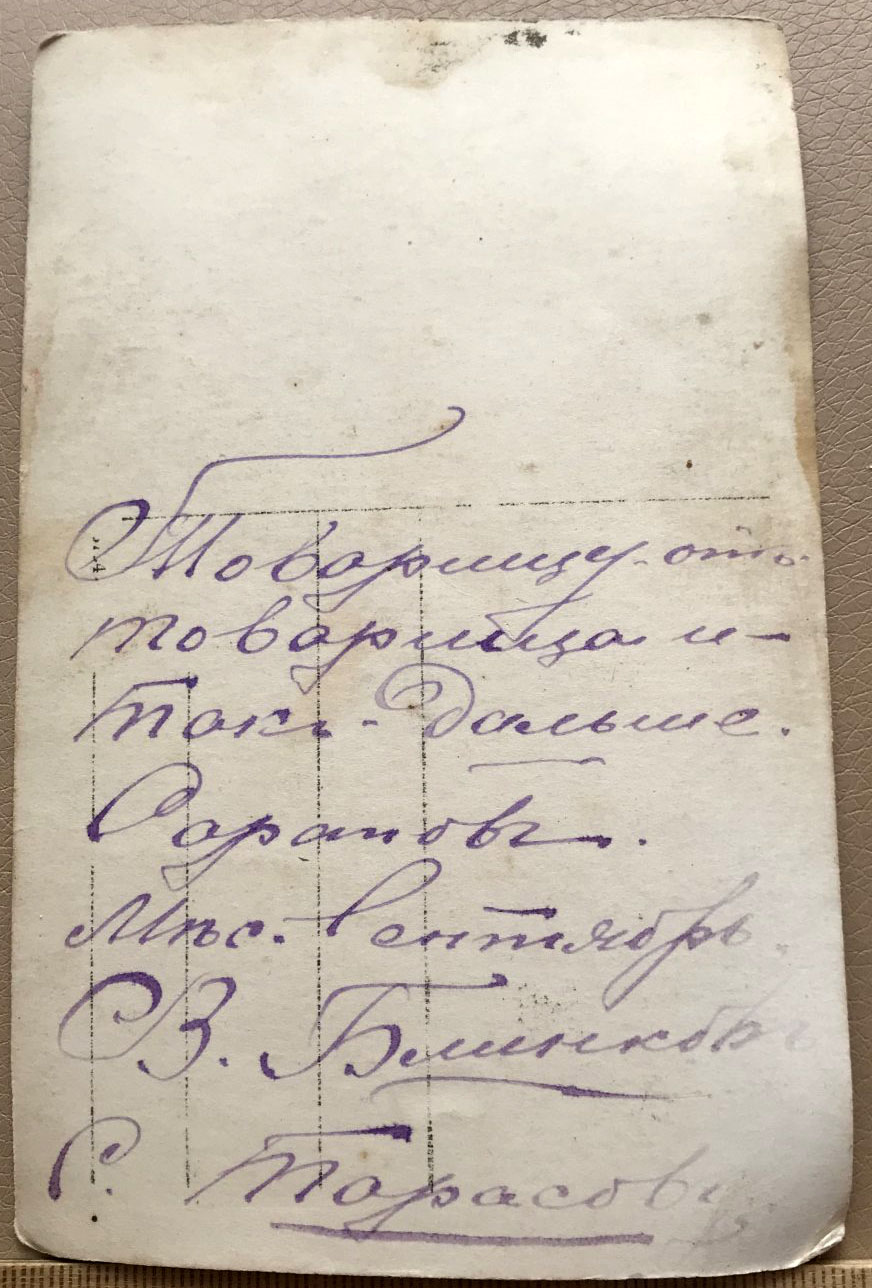 Товарищу. отъ.
товарища и-
такъ. Дальше.
Саратовъ.
Мѣс. Сентябрь.
В. Блинковъ
С. Тарасовъ